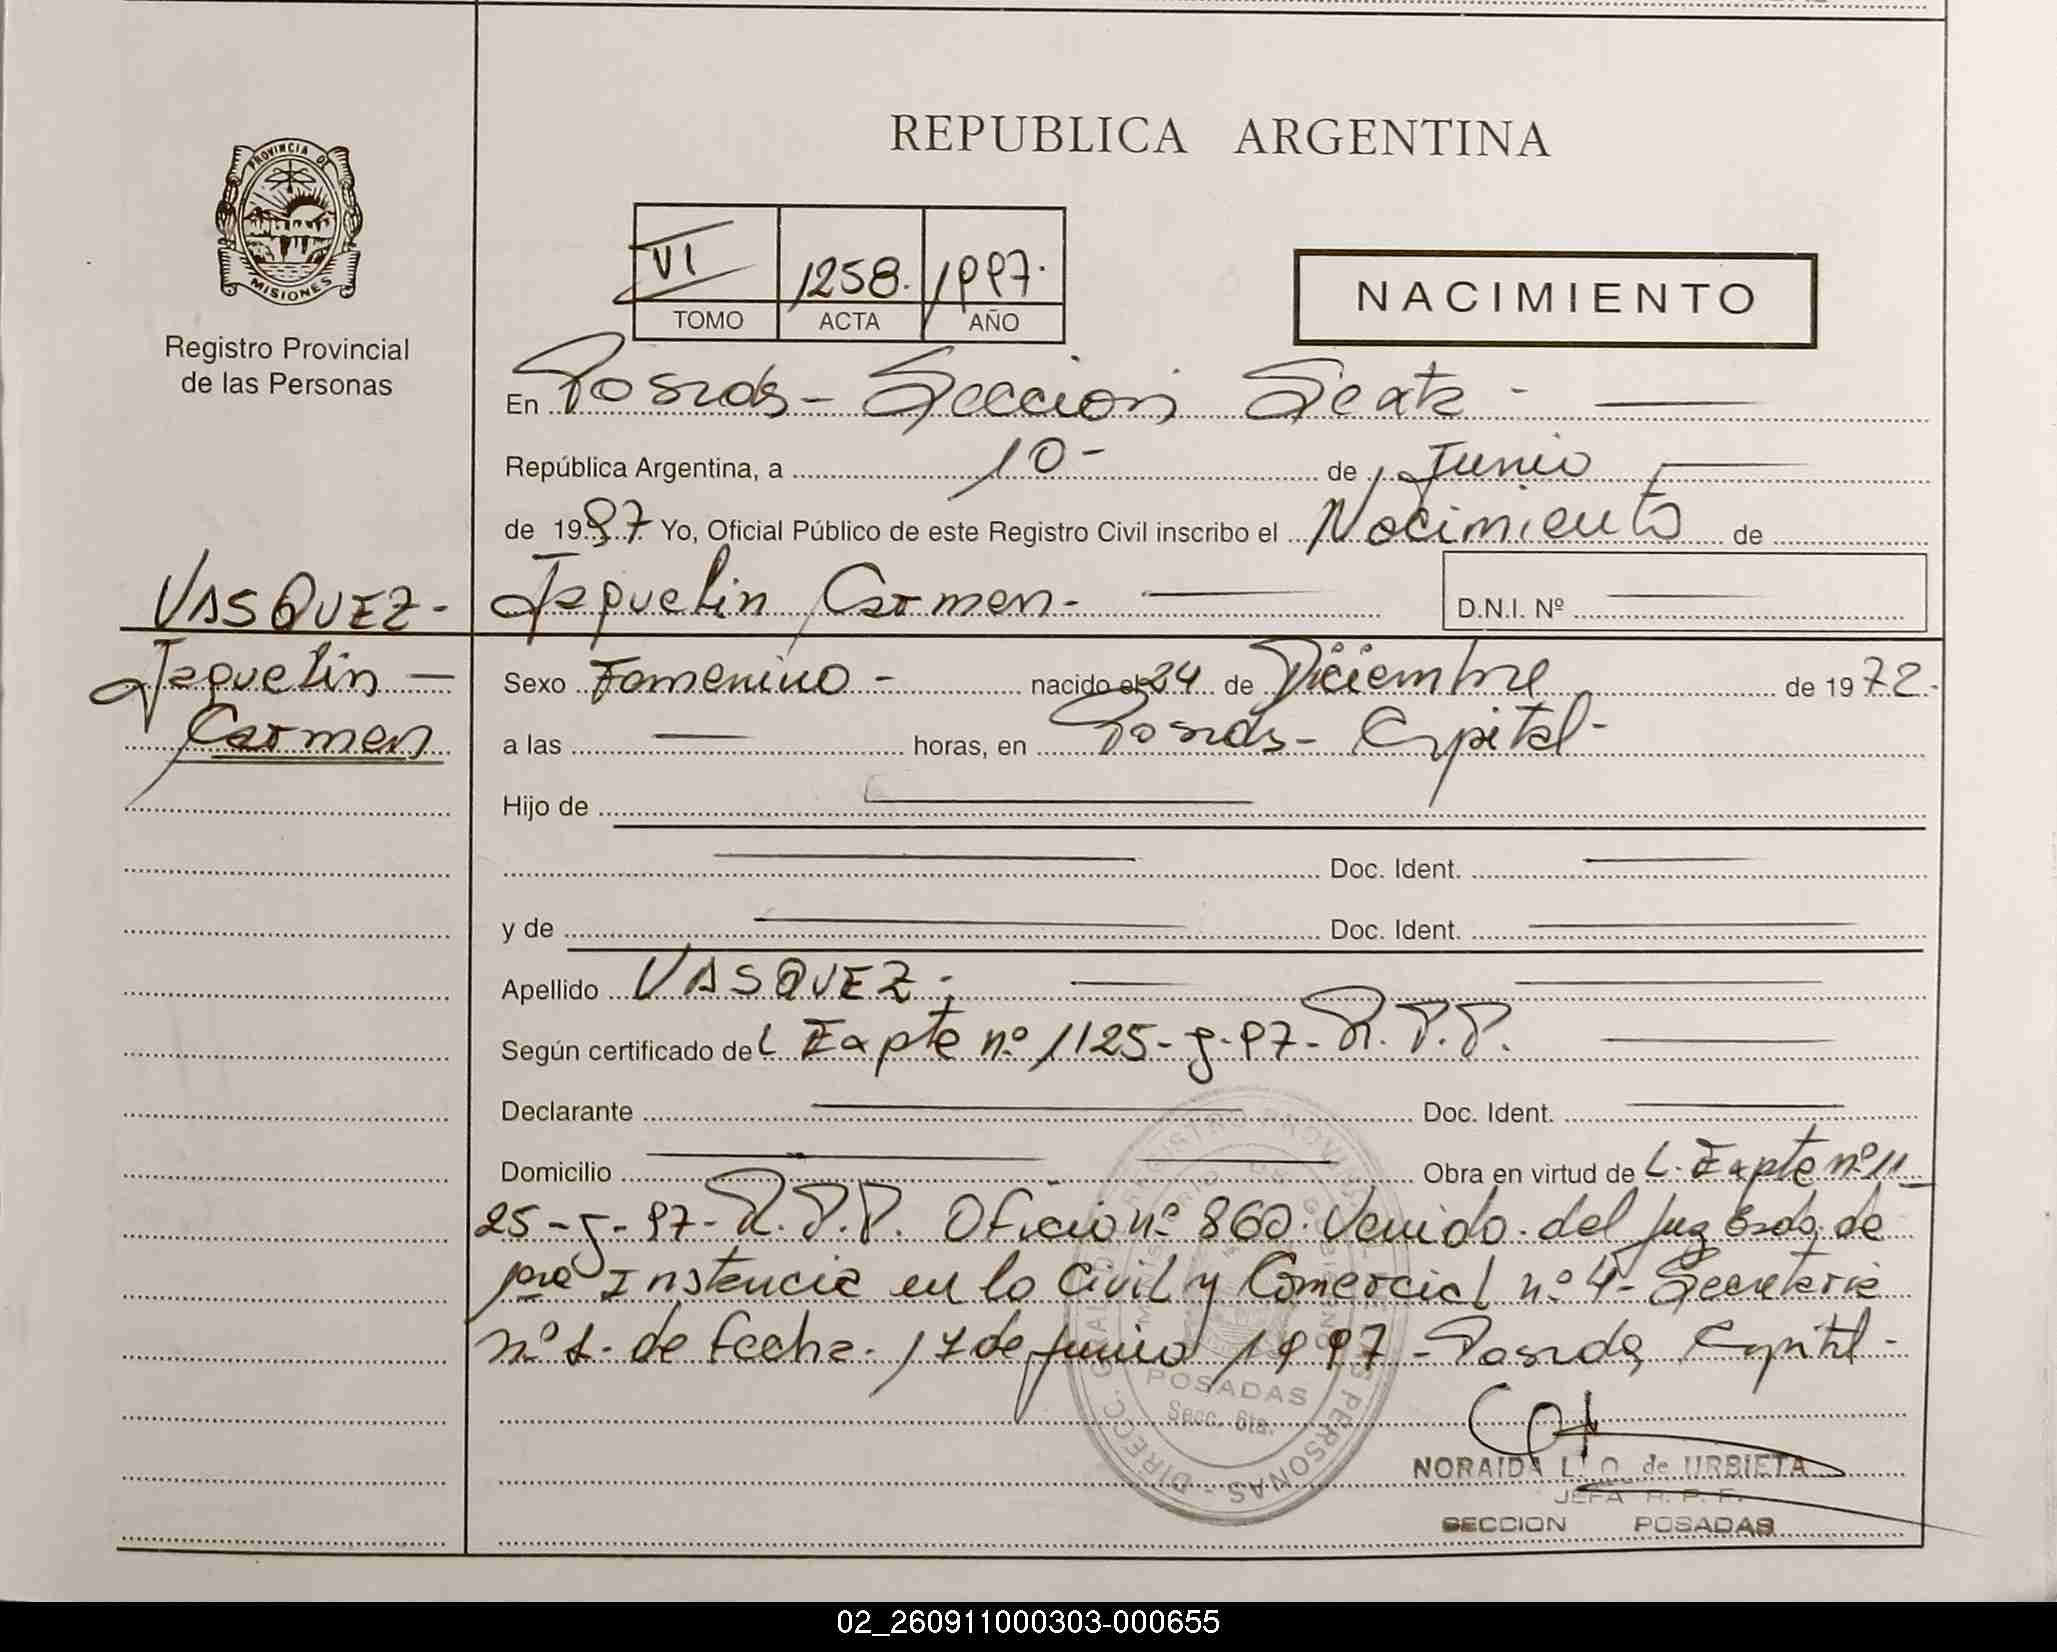 REPUBLICA ARGENTINA
PROVINCIA DE
MISIONES
Registro Provincial
de las Personas
VI 1258. 1997.
TOMO ACTA AÑO
NACIMIENTO
En Posadas - Seccion Sexta -
República Argentina, a 10 - de Junio
de 1997 Yo, Oficial Público de este Registro Civil inscribo el Nacimiento de
VASQUEZ - Jaquelin Carmen - D.N.I. Nº
Jaquelin
Carmen
Sexo Femenino - nacido el 24 de Diciembre de 1972.-
a las horas, en Posadas - Capital -
Hijo de
Doc. Ident.
y de Doc. Ident.
Apellido VASQUEZ -
Según certificado del Expte nº 1125 - J - 97 - R.P.P.
Declarante Doc. Ident.
Domicilio Obra en virtud de L. Expte nº 11
25 - J - 97 - R.P.P. Oficio nº 860. Venido del Juzgado de
1ra Instancia en lo Civil y Comercial nº 4 - Secretaria
nº 1. de fecha. 17 de junio 1997 - Posadas Capital -
DIRECC. GRAL. DE REGISTRO PROVINCIAL DE LAS PERSONAS -
MINISTERIO DE GOBIERNO
POSADAS
Secc. 6ta.
NORAIDA L. O. de URBIETA
JEFA R. P. P.
SECCION POSADAS
02_260911000303-000655